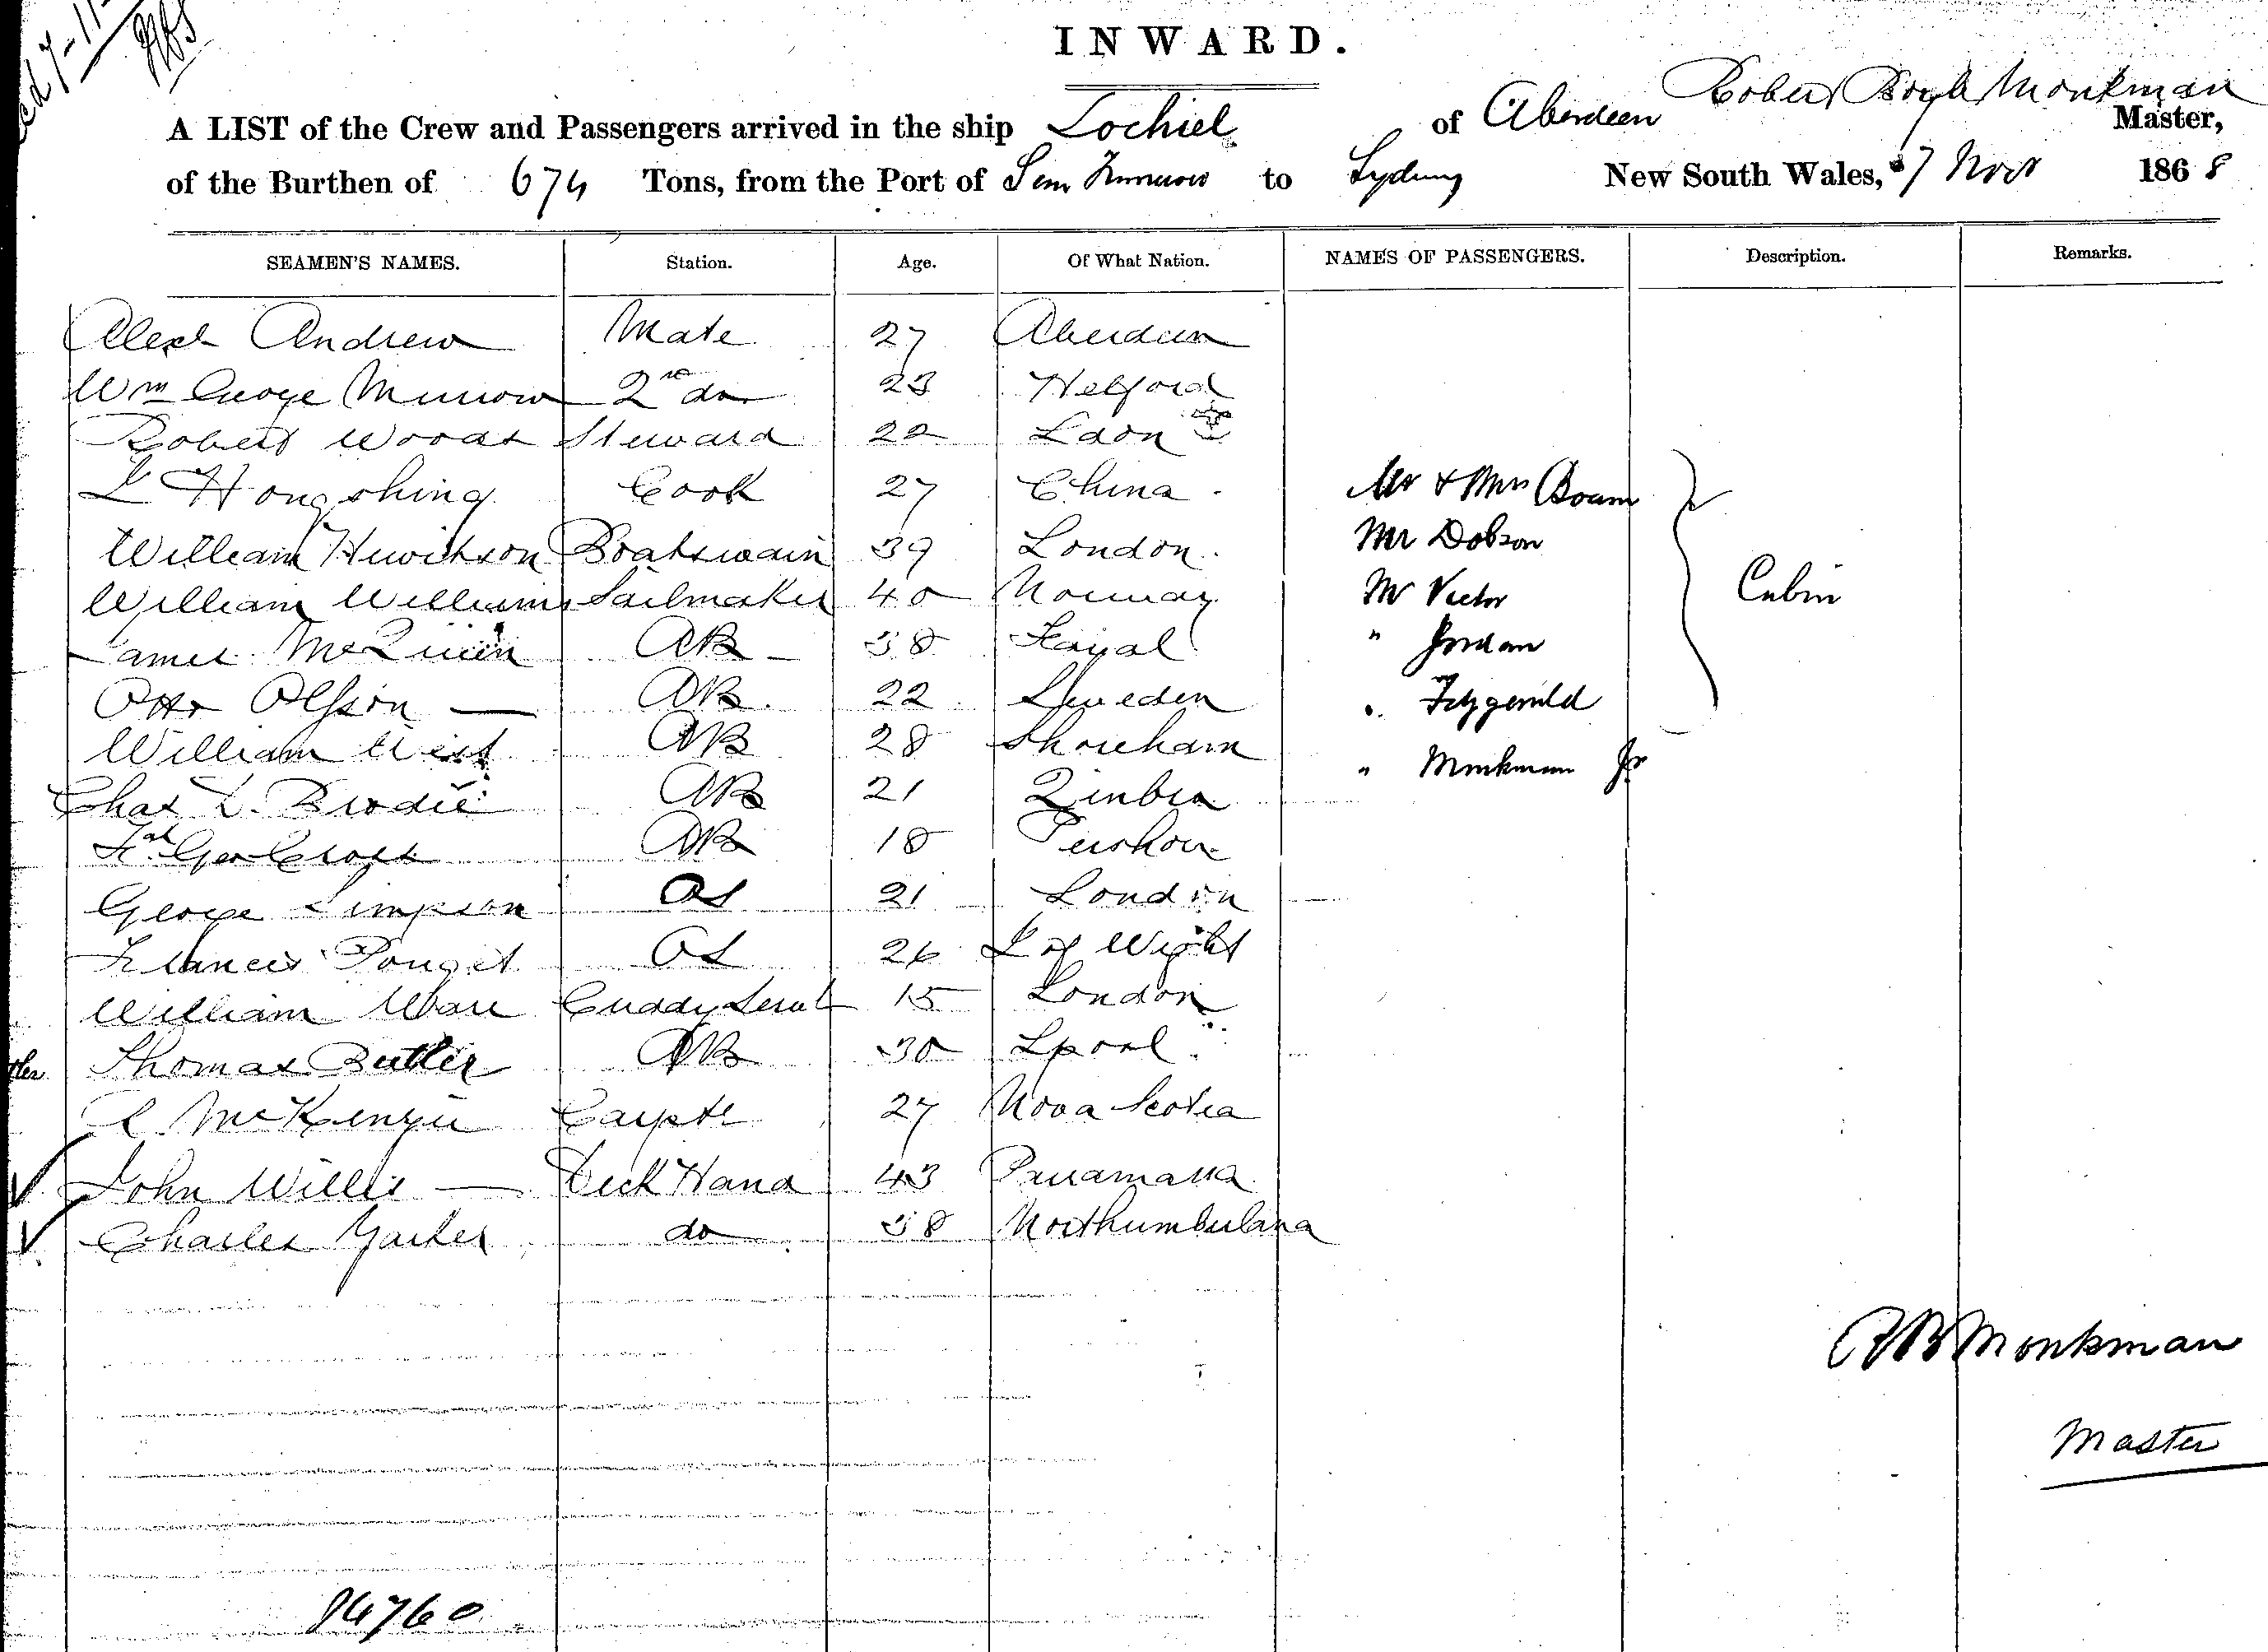 INWARD.
A LIST of the Crew and Passengers arrived in the ship Lochiel of Aberdeen Robert Monkman Master,
of the Burthen of 674 Tons, from the Port of San to Sydney New South Wales, 7 Nov 1868
SEAMEN'S NAMES. Station. Age. Of What Nation. NAMES OF PASSENGERS. Description. Remarks.
Alexr Andrew Mate 27 Aberdeen
Wm George 2nd do 23 Helford
Robert Woods Steward 22 Ldon
L Hongshing Cook 27 China
Mr & Mrs Boam
William Hewitson Boatswain 39 London
Mr Dobson
William Williams Sailmaker 40 Norway
Mr Victor
Cabin
James AB 38 Fayal
" Jordan
Otto Olsson AB 22 Sweden
" Fitzgerald
William West AB 28 Shoreham
" Monkman Jr
Chas D. Brodie AB 21
Geo Cross AB 18 Pershore
George Simpson OS 21 London
Francis Pouget OS 26 I of Wight
William Ware Cuddy Servt 15 London
Thomas Butler AB 30 Lpool
McKenzie Carptr 27 Nova Scotia
John Willis Deck Hand 43
Charles do 38 Northumberland
R B Monkman
Master